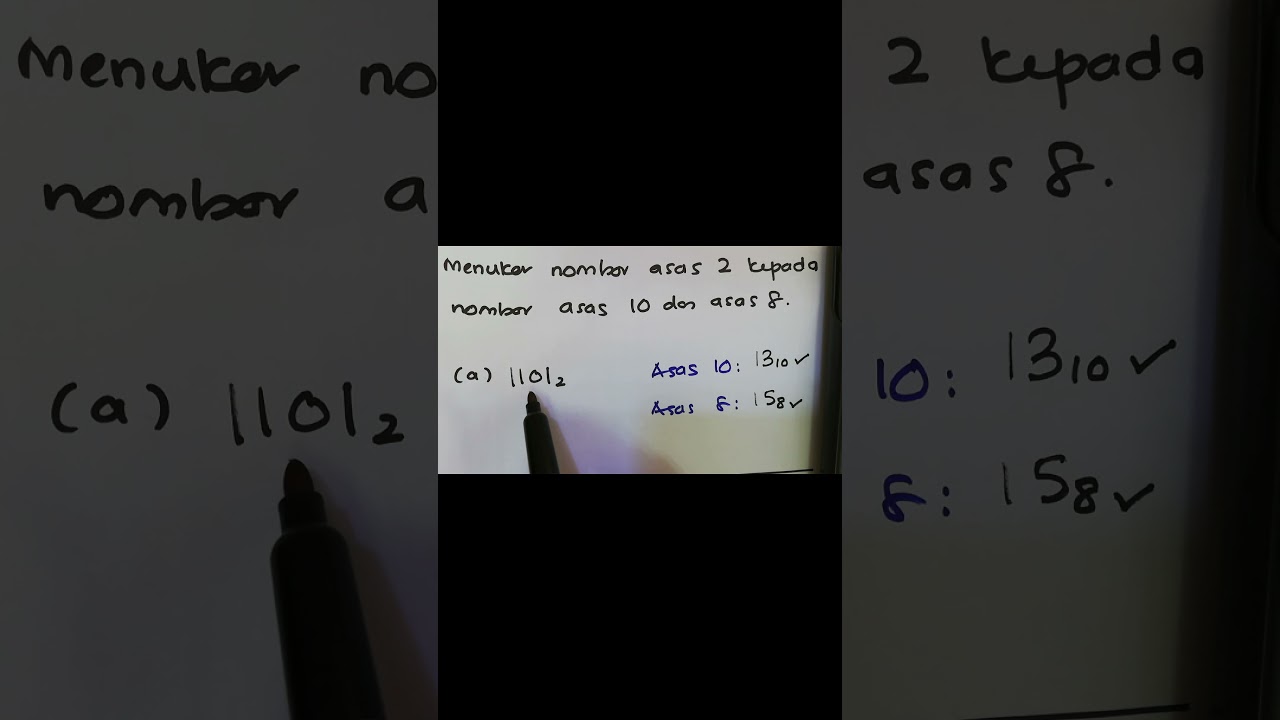 Menukar nombor asas 2 kepada
nombor asas 10 dan asas 8.
(a) 1101₂
Asas 10: 13₁₀ ✓
Asas 8: 15₈ ✓